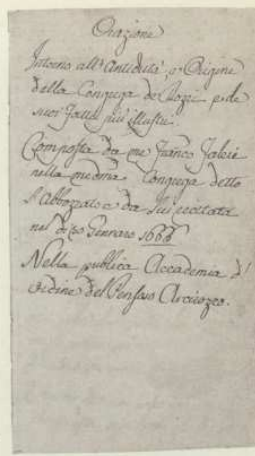 Orazione
Intorno all'Antichità, o Origine
della Congrega de Rozzi, e de
suoi fatti più illustri.
Composta da me Franco
nella medma Congrega detto
L'Abbozzato e da lui recitata
nel dì 20 Gennaro 1666
Nella publica Accademia d'
ordine del Arcirozzo.